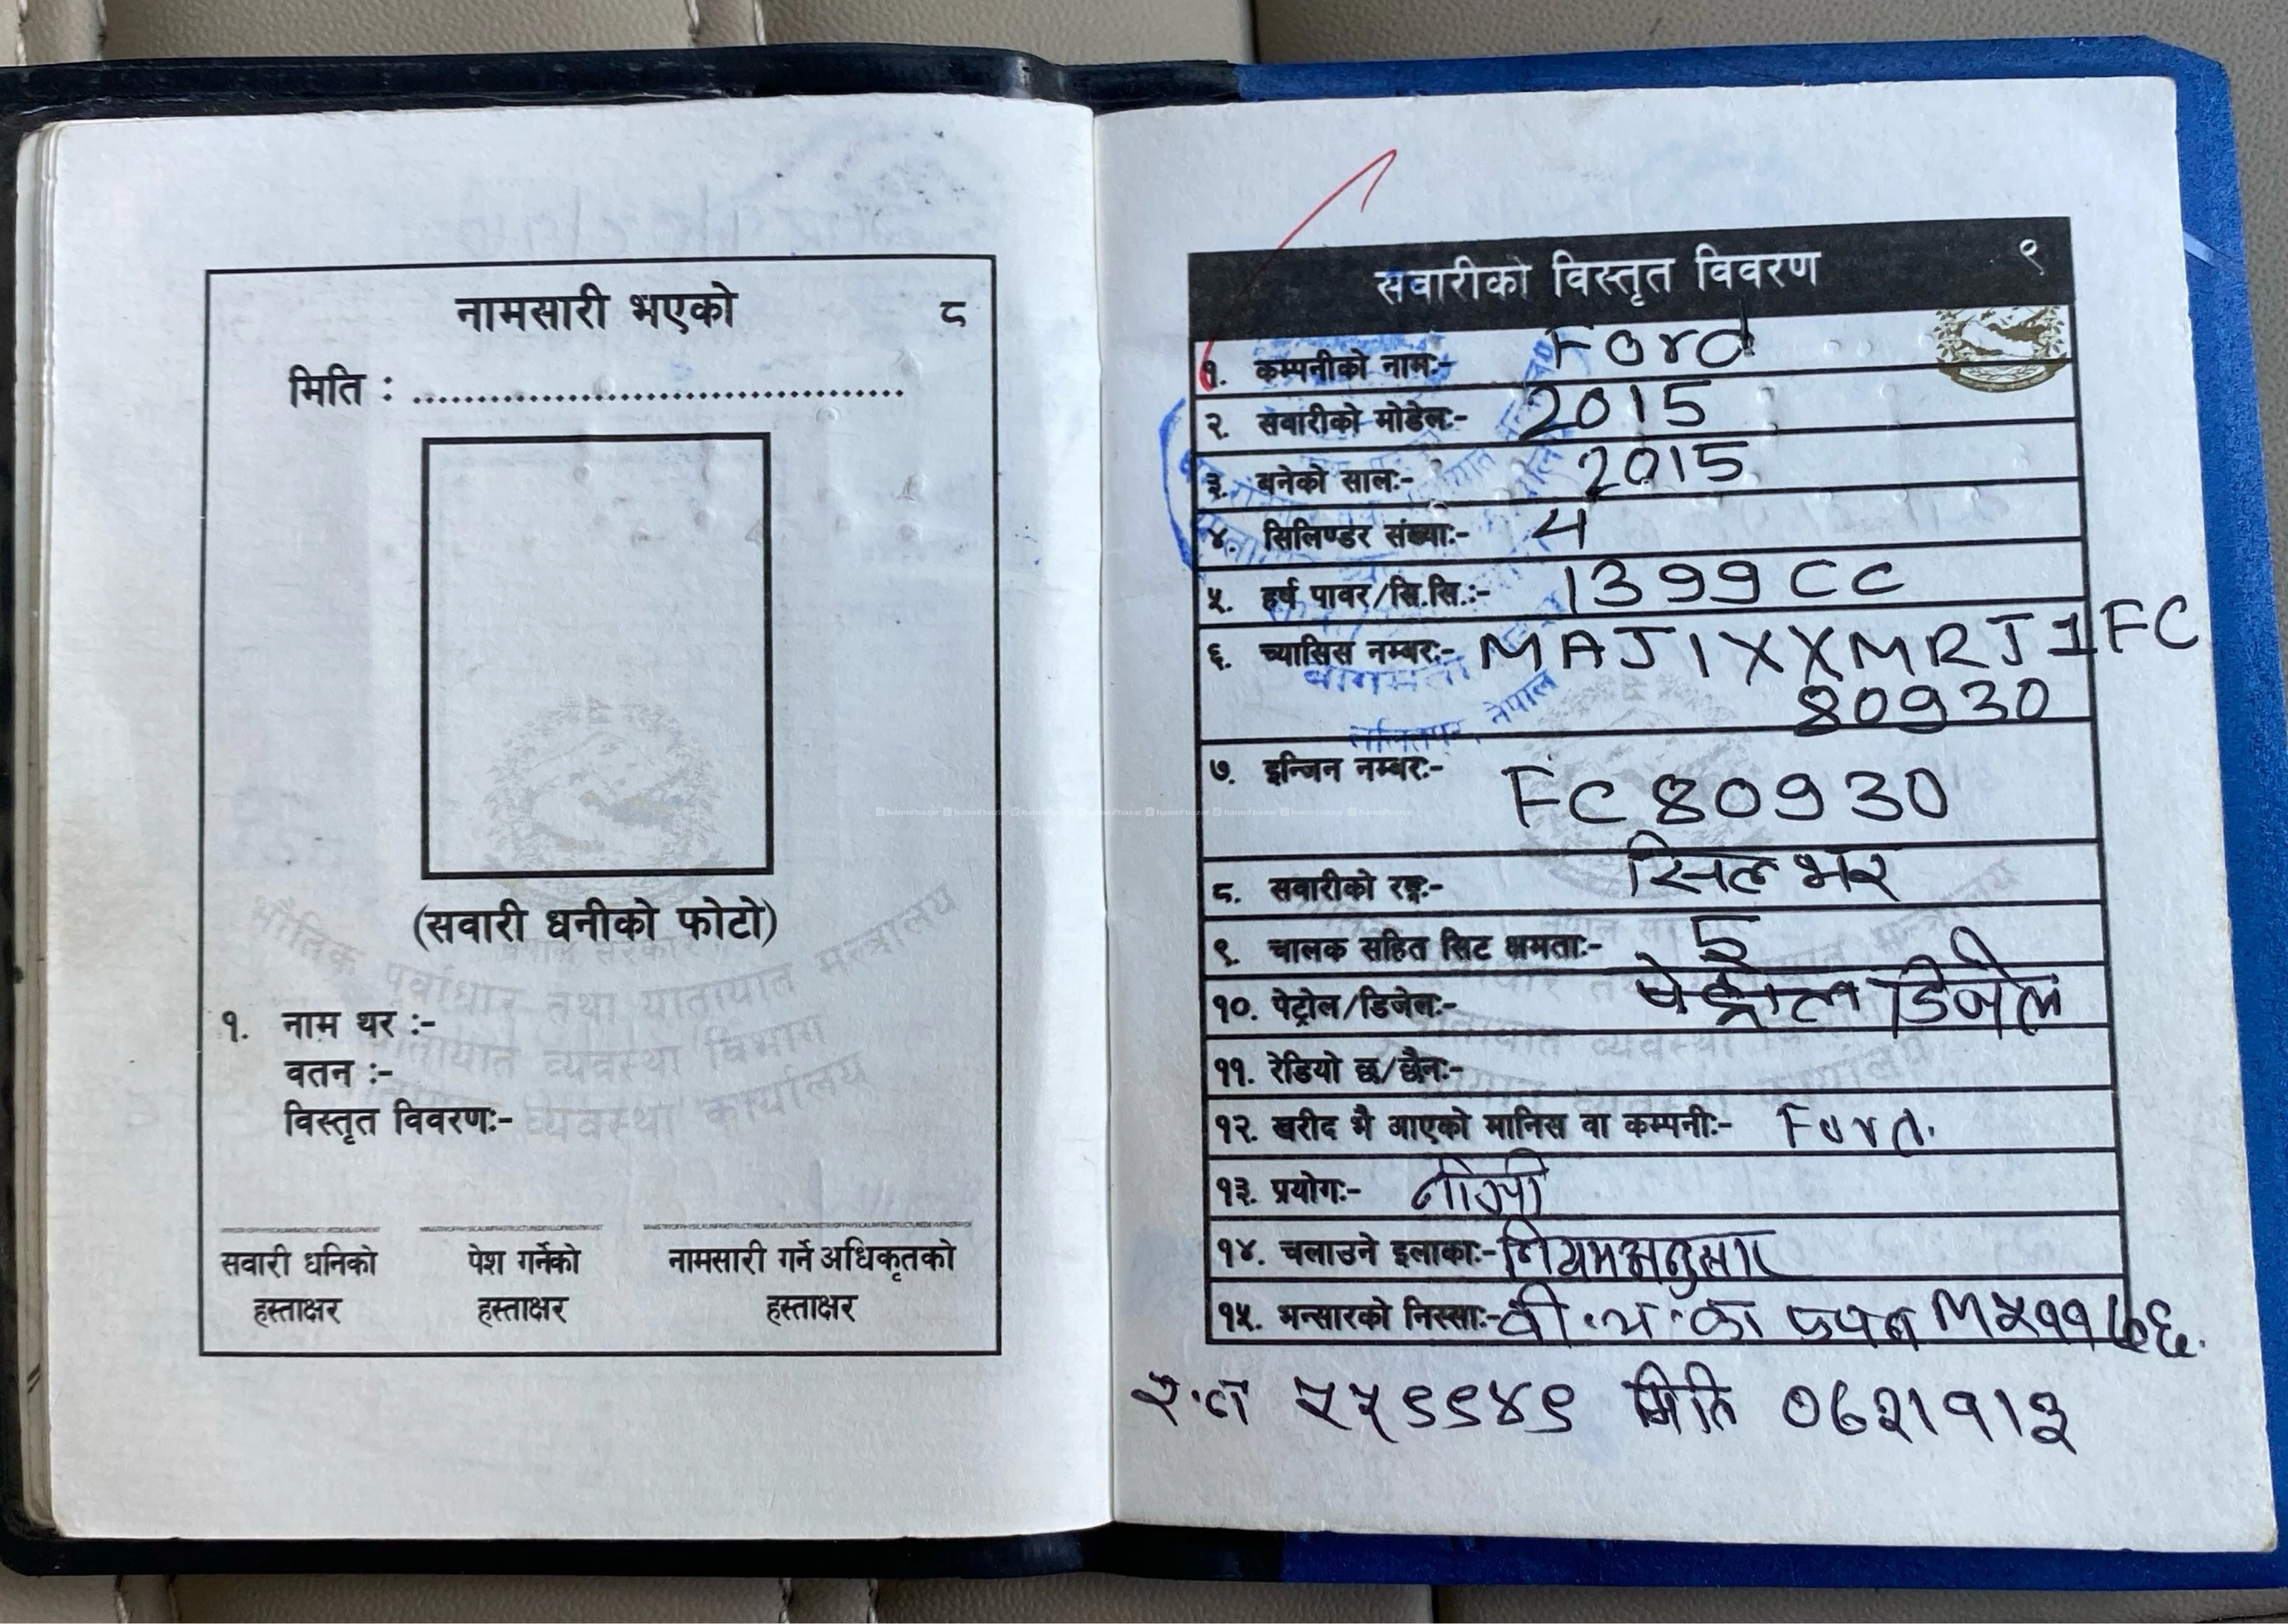 नामसारी भएको ८
मिति : ........................................
(सवारी धनीको फोटो)
नेपाल सरकार
भौतिक पूर्वाधार तथा यातायात मन्त्रालय
यातायात व्यवस्था विभाग
यातायात व्यवस्था कार्यालय
१. नाम थर :-
वतन :-
विस्तृत विवरण:-
सवारी धनिको पेश गर्नेको नामसारी गर्ने अधिकृतको
हस्ताक्षर हस्ताक्षर हस्ताक्षर
सवारीको विस्तृत विवरण ९
१. कम्पनीको नाम:- Ford
२. सवारीको मोडेल:- 2015
३. बनेको साल:- 2015
४. सिलिण्डर संख्या:- 4
५. हर्ष पावर/सि.सि.:- 1399 CC
६. च्यासिस नम्बर:- MAJ1XXMRJ1FC
80930
७. इन्जिन नम्बर:- FC80930
८. सवारीको रङ्ग:- सिलभर
९. चालक सहित सिट क्षमता:- 5
१०. पेट्रोल/डिजेल:- पेट्रोल डिजेल
११. रेडियो छ/छैन:-
१२. खरीद भै आएको मानिस वा कम्पनी:- Ford.
१३. प्रयोग:- नीजी
१४. चलाउने इलाका:- नियमअनुसार
१५. भन्सारको निस्सा:- वी.भ.का M५११७६.
र.नं ५५९९४९ मिति ०७२।१।३
बागमती
ललितपुर, नेपाल